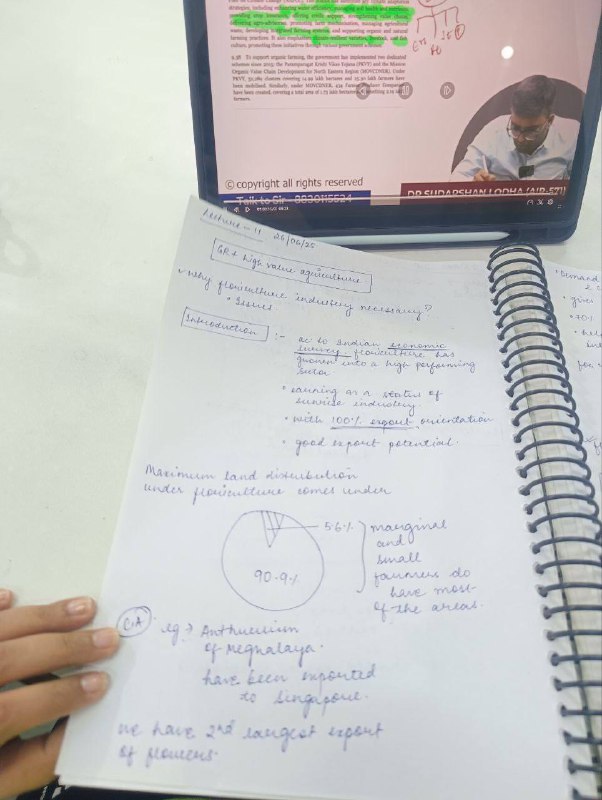 strategies, including enhancing water efficiency, managing soil health and nutrients,
providing crop insurance, offering credit support, strengthening value chains,
delivering agro-advisories, promoting farm mechanisation, managing agricultural
waste, developing integrated farming systems, and supporting organic and natural
farming practices. It also emphasises climate-resilient varieties, livestock, and fish
culture, promoting these initiatives through various government schemes.
To support organic farming, the government has implemented two dedicated
schemes since 2015: the Paramparagat Krishi Vikas Yojana (PKVY) and the Mission
Organic Value Chain Development for North Eastern Region (MOVCDNER). Under
been mobilised. Similarly, under MOVCDNER, 434 Farmer Producer Companies
have been created, covering a total area of 1.73 lakh hectares
farmers.
© copyright all rights reserved
Talk to Sir - 8830115524
DR SUDARSHAN LODHA (AIR-571)
Lecture - 11 26/06/25
GR + high value agriculture
why floriculture industry necessary?
• Issues
Introduction :-
ac to Indian economic
survey, floriculture has
grown into a high performing
sector
• earning as a status of
sunrise industry.
• with 100% export orientation
• good export potential.
Maximum land distribution
under floriculture comes under
5.6%
90.9%
marginal
and
small
farmers do
have most
of the areas.
C.A
eg → Anthurium
of Meghalaya.
have been exported
to Singapore.
we have 2nd largest export
of flowers.
• Demand
• gives
• 70%
for